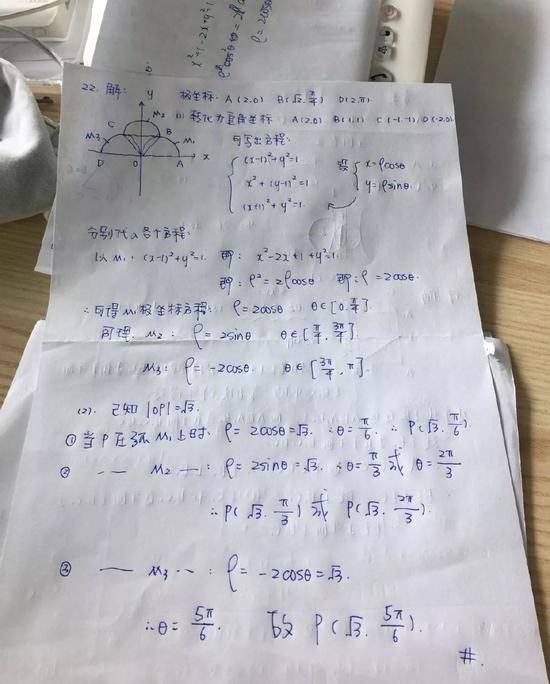 x²+1-2x+y²=1
ρ=2cosθ
22. 解:
极坐标: A(2.0) B(√2.π/4) D(2.π)
(1) 转化为直角坐标 A(2.0) B(1,1) C(-1,1) D(-2.0)
y
M₂
C
B
M₃
M₁
D
O
A
x
可写出方程:
(x-1)²+y²=1
x²+(y-1)²=1
(x+1)²+y²=1.
x=ρcosθ
y=ρsinθ.
分别代入各个方程:
以M₁: (x-1)²+y²=1. 即: x²-2x+1+y²=1.
即: ρ²=2ρcosθ 即: ρ=2cosθ.
∴可得M₁极坐标方程: ρ=2cosθ θ∈[0.π/4].
同理. M₂: ρ=2sinθ θ∈[π/4, 3π/4].
M₃: ρ=-2cosθ. θ∈[3π/4, π].
(2). 已知|OP|=√3.
① 当P在弧M₁上时. ρ=2cosθ=√3. ∴θ=π/6. ∴P(√3.π/6).
② — — M₂ —: ρ=2sinθ=√3. ∴θ=π/3 或 θ=2π/3
∴P(√3.π/3) 或 P(√3.2π/3).
③ — M₃ --: ρ=-2cosθ=√3.
∴θ=5π/6. 故 P(√3.5π/6).
#.